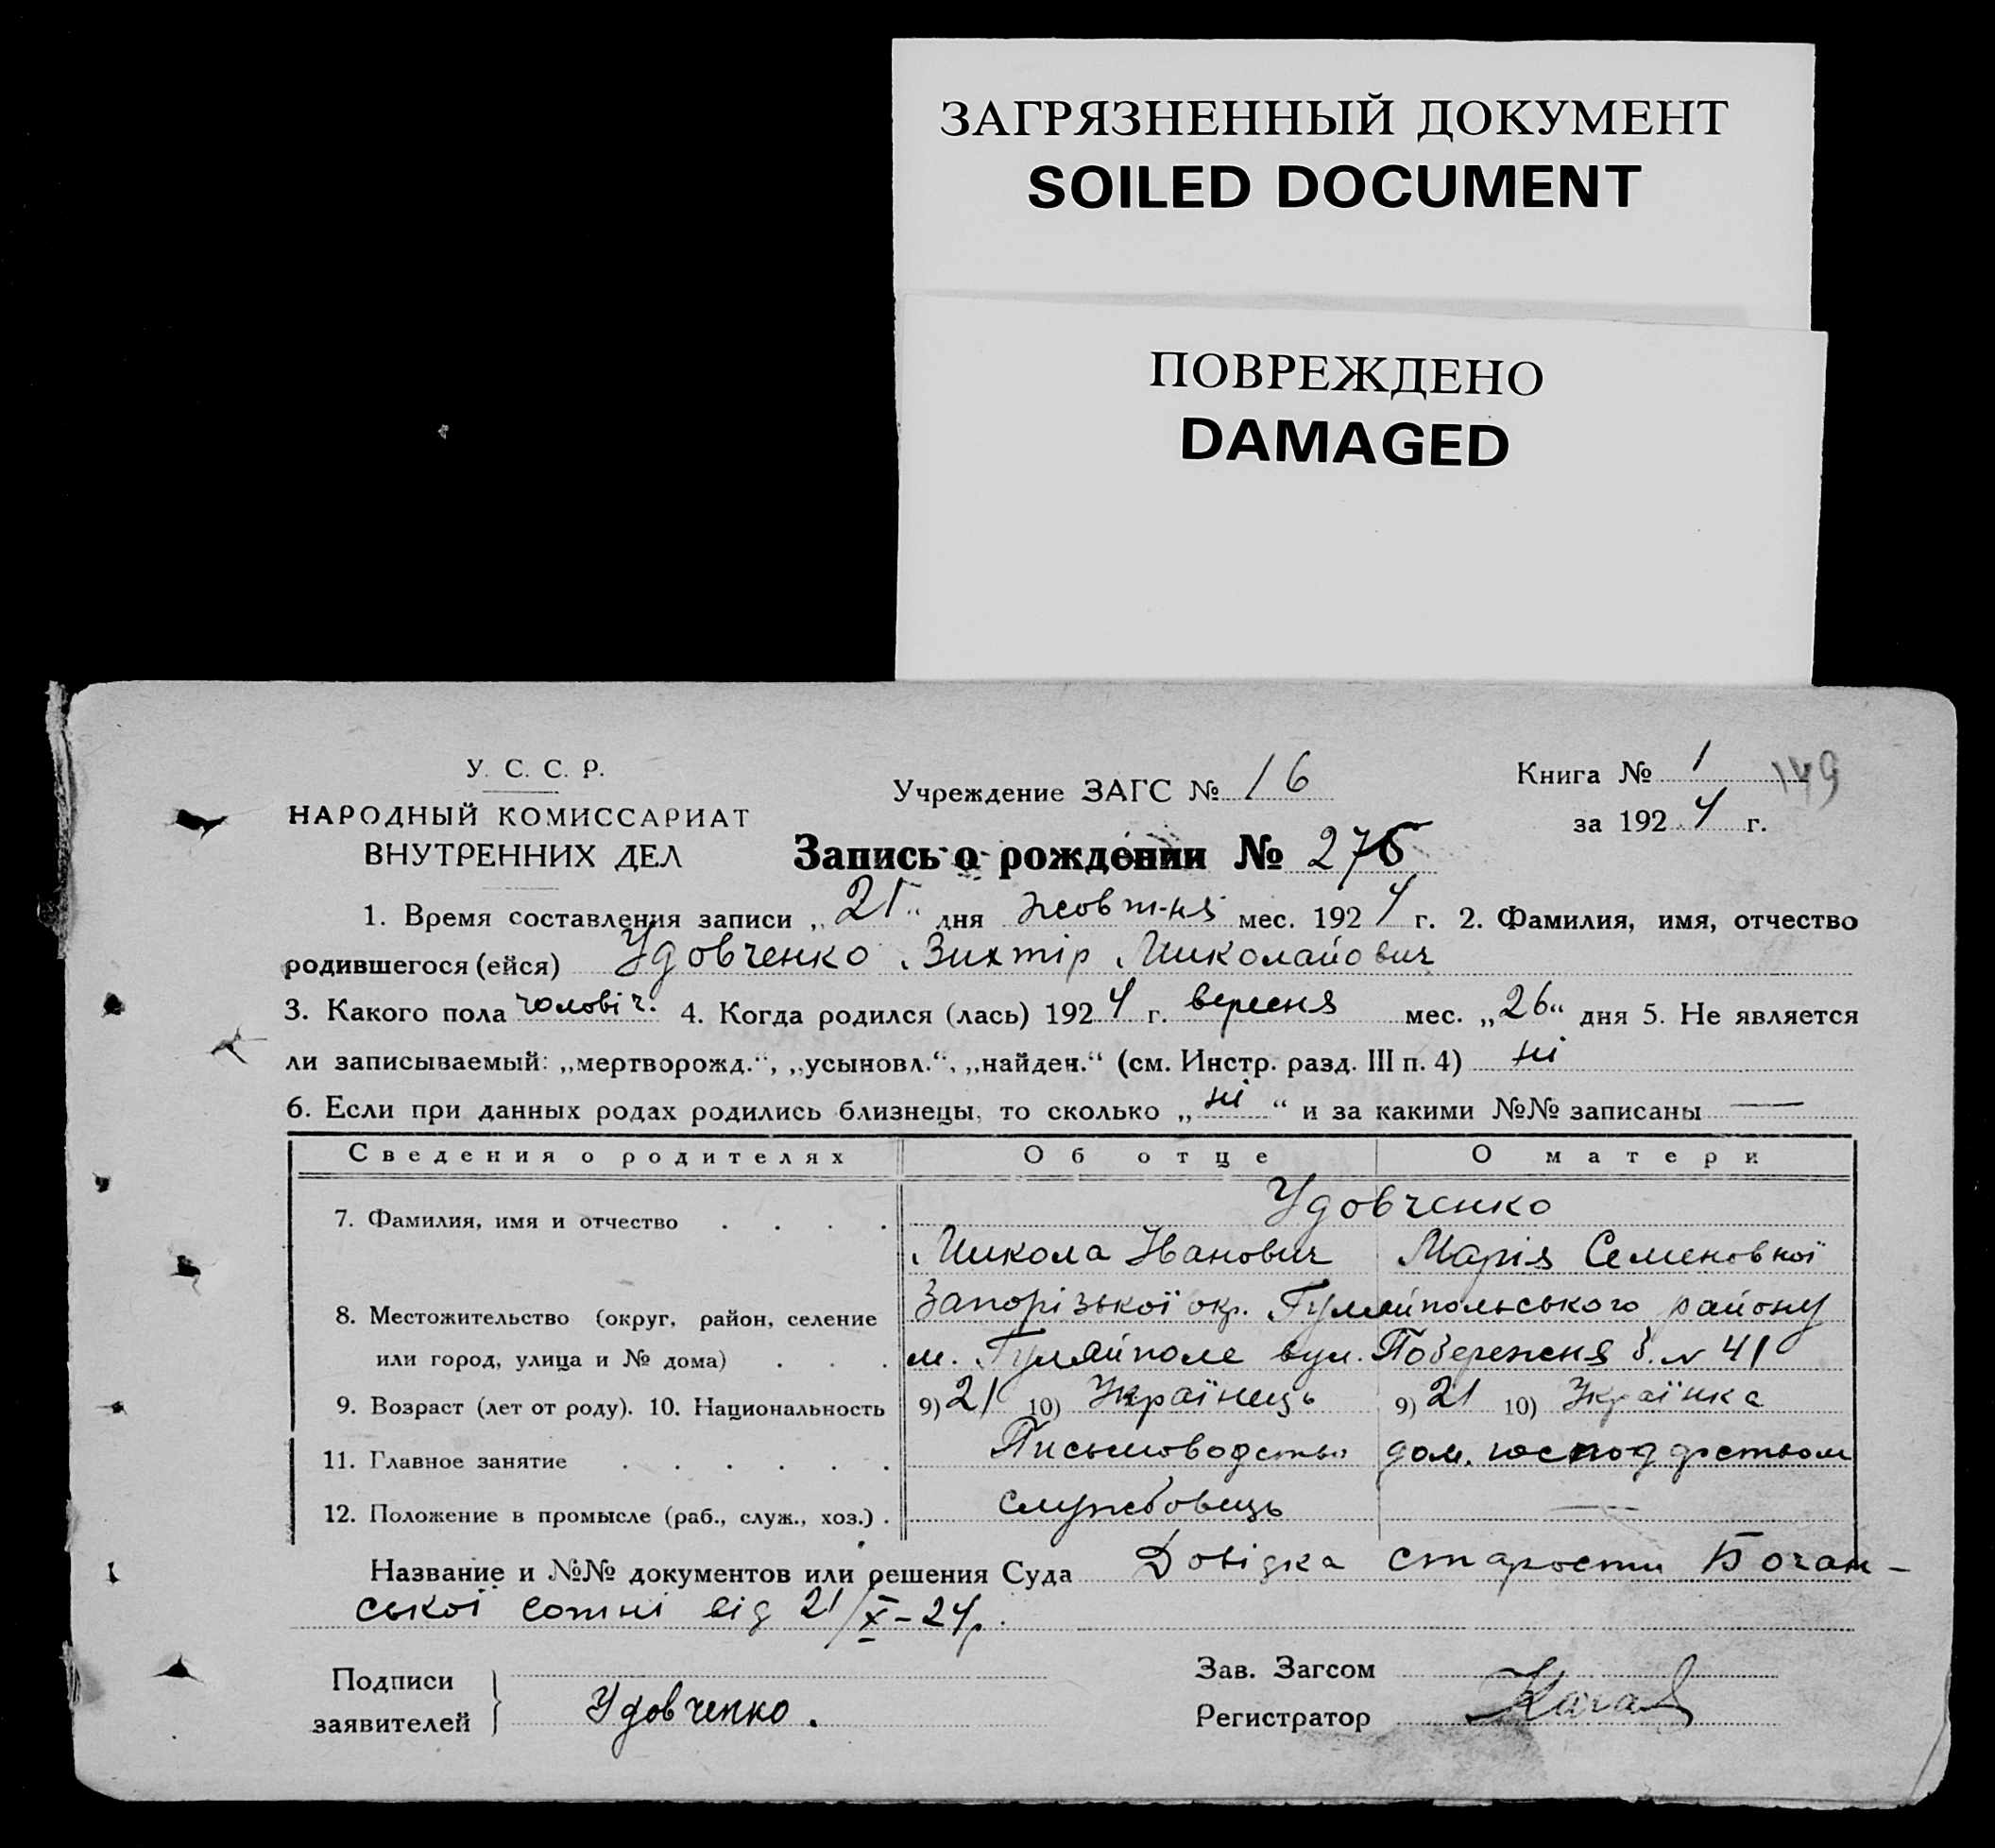 ЗАГРЯЗНЕННЫЙ ДОКУМЕНТ
SOILED DOCUMENT
ПОВРЕЖДЕНО
DAMAGED
У. С. С. Р.
НАРОДНЫЙ КОМИССАРИАТ
ВНУТРЕННИХ ДЕЛ
Учреждение ЗАГС № 16
Книга № 1 149
за 1924 г.
Запись о рождении № 276
1. Время составления записи „21“ дня жовт-ня мес. 1924 г. 2. Фамилия, имя, отчество
родившегося (ейся) Удовченко Вихтір Миколайович
3. Какого пола чоловіч. 4. Когда родился (лась) 1924 г. вересня мес. „26“ дня 5. Не является
ли записываемый: „мертворожд.“, „усыновл.“, „найден.“ (см. Инстр. разд. III п. 4) ні
6. Если при данных родах родились близнецы, то сколько „ні“ и за какими №№ записаны —
Сведения о родителях Об отце О матери
7. Фамилия, имя и отчество . . . . Удовченко
Микола Іванович Марія Семеновної
8. Местожительство (округ, район, селение Запорізької окр. Гуляйпольського району
или город, улица и № дома) . . . м. Гуляйполе вул. Побережня б. № 41
9. Возраст (лет от роду). 10. Национальность 9) 21 10) Українець 9) 21 10) Українка
11. Главное занятие . . . . . . Письмоводство дом.
12. Положение в промысле (раб., служ., хоз.) . службовець —
Название и №№ документов или решения Суда Довідка старости Бочан-
ської сотні від 21/X-24р.
Подписи
заявителей } Удовченко.
Зав. Загсом
Регистратор